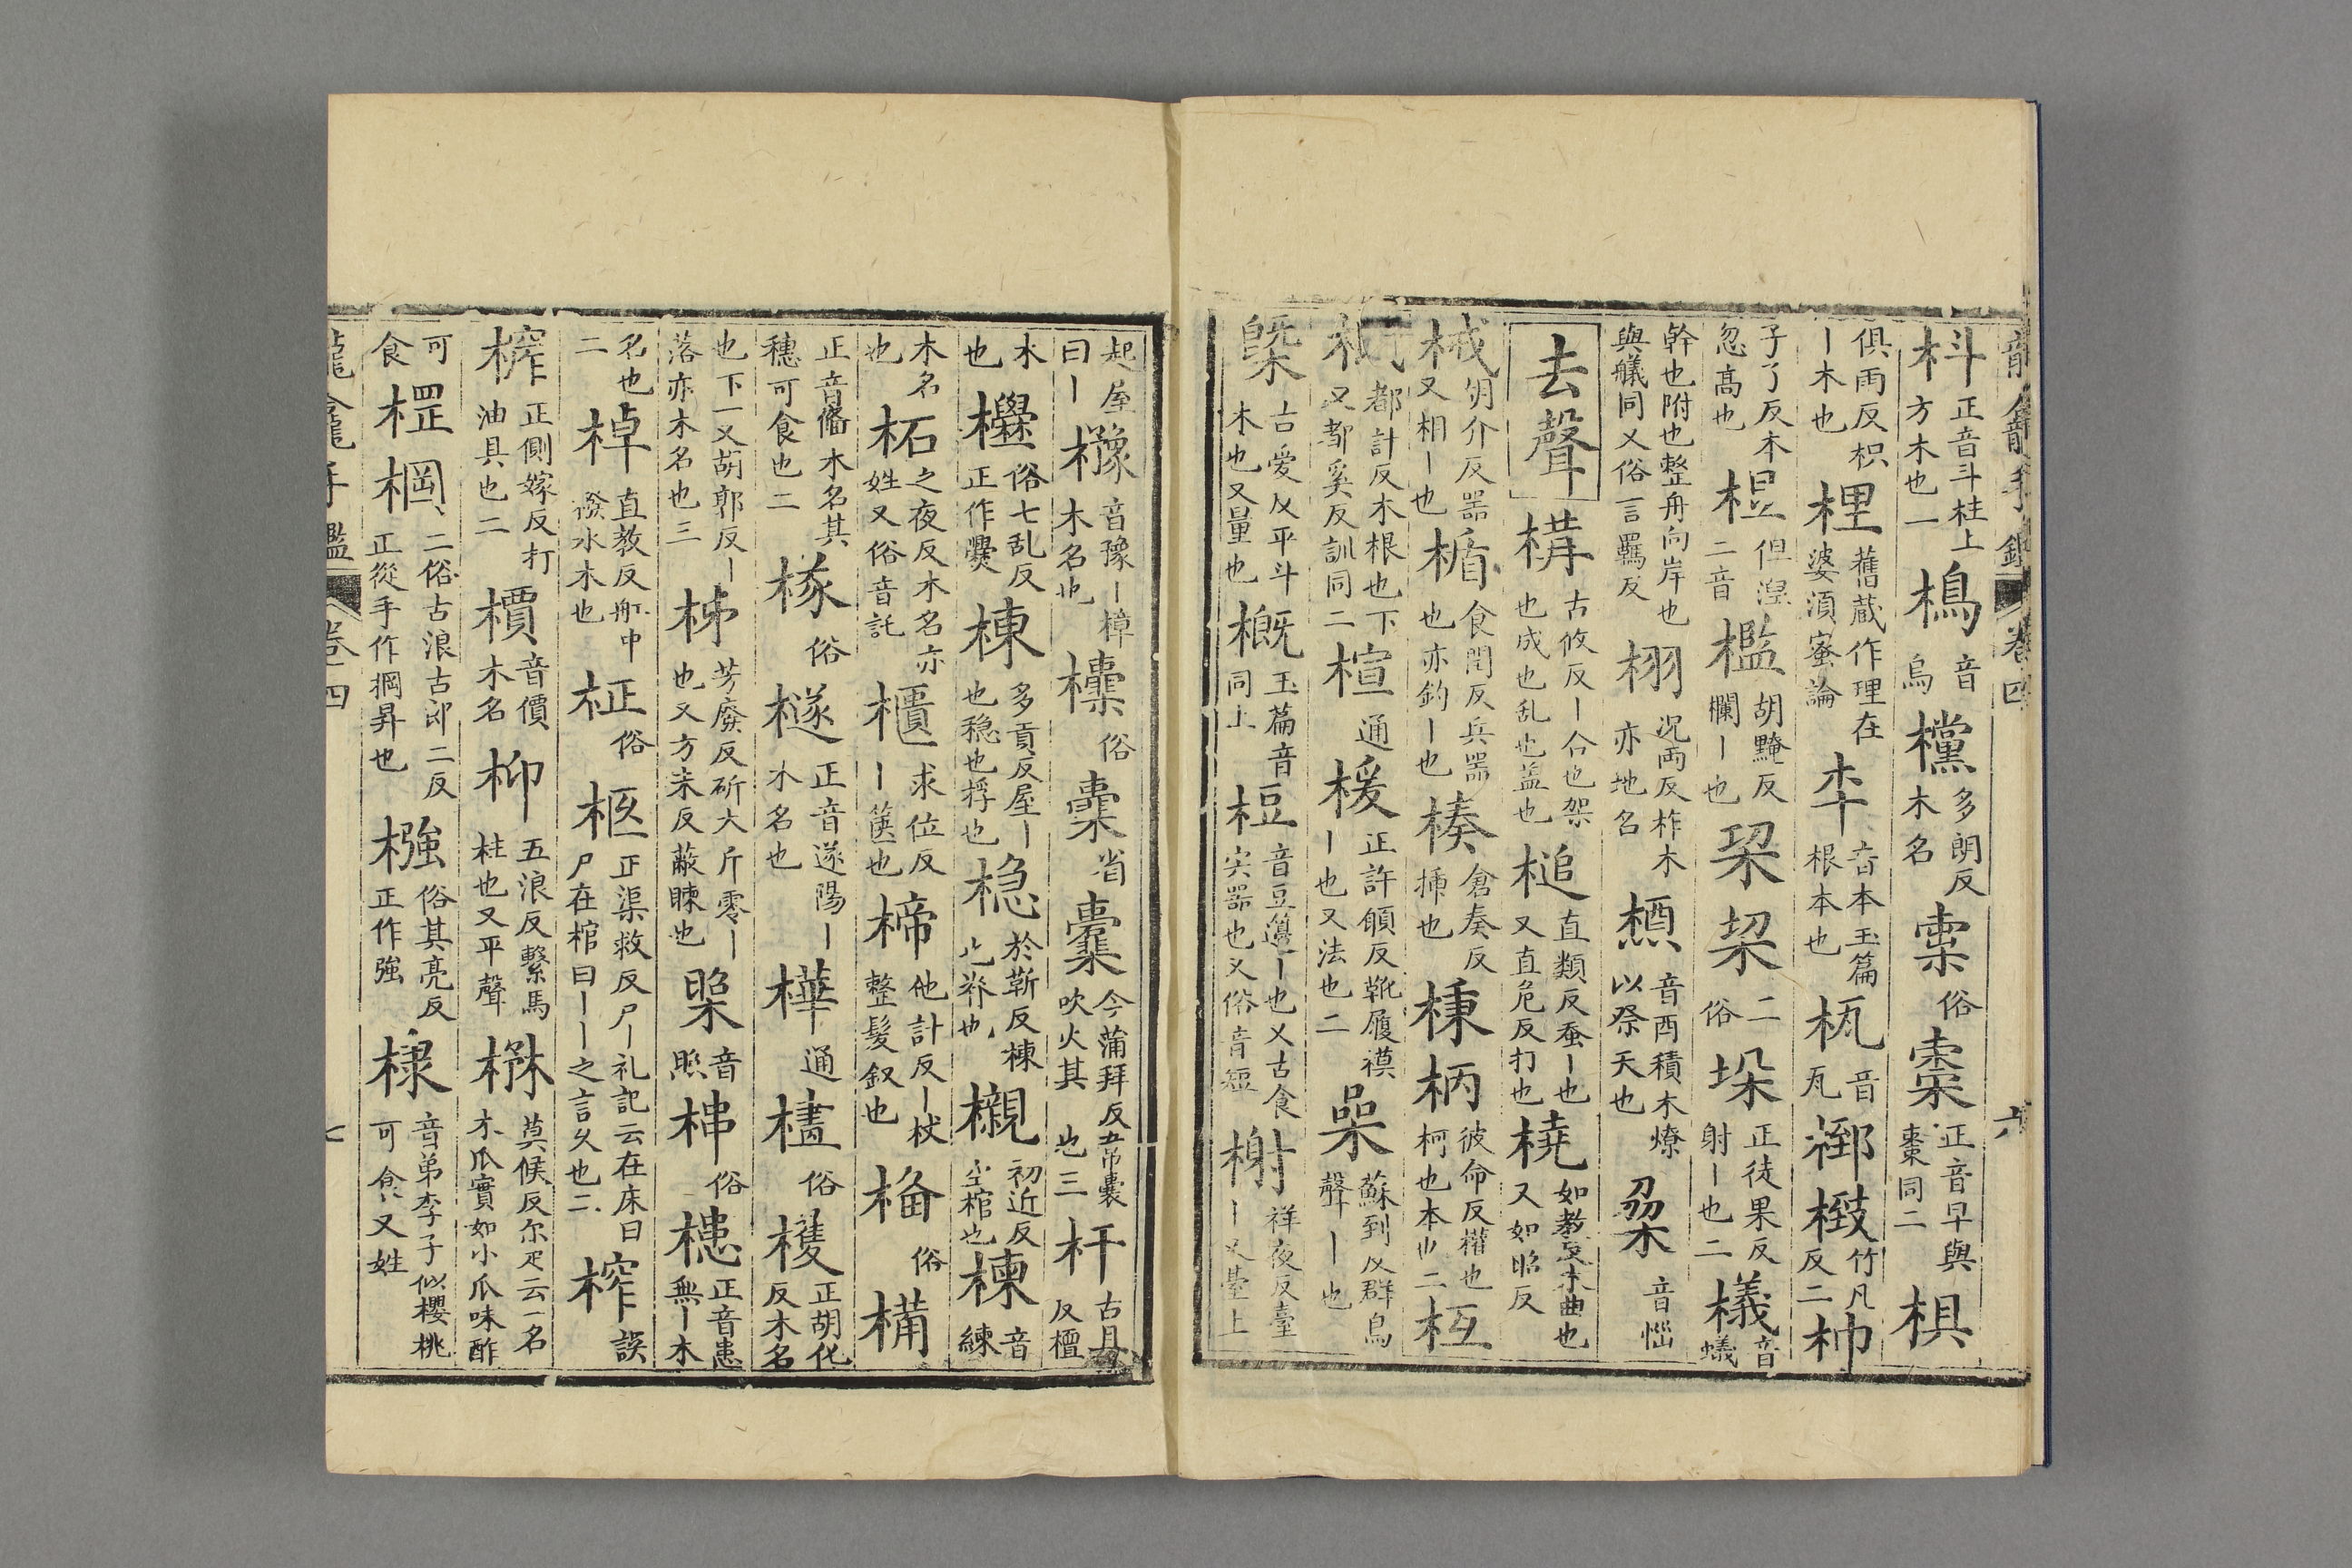 龍龕手鑑 卷四 六
枓正音斗柱上方木也一㭡音烏欓多朗反木名𣐀俗𣗥正音早與棗同二椇
俱雨反枳丨木也梩舊藏作理在婆湏蜜論㮺音本玉篇根本也㼽音瓦𣘚㮹竹凡反二㭂
子了反木忽髙也榅但湼二音檻胡黤反欄丨也𣒅𣓀二俗垜正徒果反射丨也二檥音蟻
幹也附也整舟向岸也與艤同又俗言羈反栩况雨反柞木亦地名槱音酉積木燎以祭天也𣑭音惱
去聲構古攸反丨合也架也成也乱也蓋也槌直類反蚕丨也又直危反打也橈如教反木曲也又如昭反
械胡介反器又相丨也楯食閏反兵器也亦釣丨也楱倉奏反揷也棅柄彼命反權也柯也本也二枑
都計反木根也下又都奚反訓同二楦通楥正許願反靴履䙏丨也又法也二喿蘇到反群鳥聲丨也
槩古愛反平斗木也又量也概玉篇音同上梪音豆籩丨也又古食宍器也又俗音短榭祥夜反臺丨又臺上
起屋曰丨櫲音豫丨樟木名也㯱俗橐省櫜今蒲拜反韋囊吹火其也三杆古旦反檀
木也㰗俗七乱反正作爨棟多貢反屋丨也穏也桴也檼於靳反棟也㯤也櫬初近反空棺也楝音練
木名也柘之夜反木名亦姓又俗音託櫃求位反丨篋也楴他計反丨杖整髮釵也㭺俗構
正音俻木名其穗可食也二㮨俗檖正音遂陽丨木名也樺通㯉俗檴正胡化反木名
也下一又胡郭反丨落亦木名也三柹芳廢反斫大斤零丨也又方未反蔽𥇒也㷖音照㭒俗槵正音患無丨木
名也二棹直教反舡中橃水木也柾俗柩正渠救反尸丨礼記云在床曰尸在棺曰丨丨之言久也二榨誤
榨正側嫁反打油具也二檟音價木名枊五浪反繫馬柱也又平聲楙莫候反尔疋云一名木瓜實如小瓜味酢
可食㭽棡二俗古浪古郎二反正從手作掆昇也㯑俗其亮反正作強棣音弟李子似櫻桃可食又姓
龍龕手鑑 卷四 七